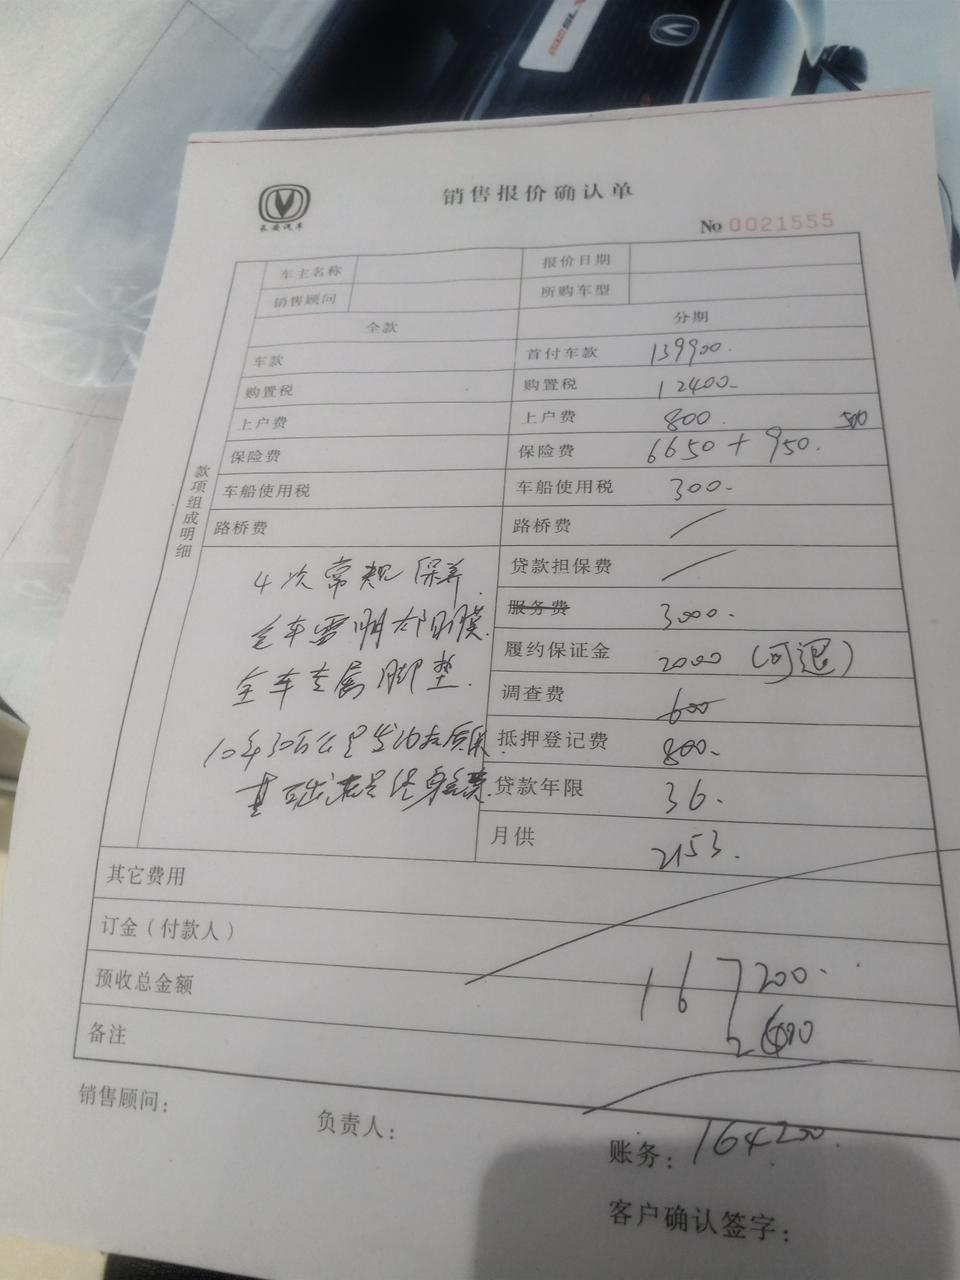 长安汽车
销售报价确认单
No 0021555
车主名称 报价日期
销售顾问 所购车型
全款 分期
车款 首付车款 139900.
购置税 购置税 12400-
上户费 上户费 800. 500
保险费 保险费 6650 + 950.
车船使用税 车船使用税 300-
路桥费 路桥费 /
款项组成明细
4次常规保养. 贷款担保费 /
全车雷朋太阳膜. 服务费 3000-
全车专属脚垫. 履约保证金 2000 (可退)
调查费 600
10年30万公里发动机质保. 抵押登记费 800-
贷款年限 36.
月供 2153.
其它费用
订金(付款人)
预收总金额 167200.
备注
销售顾问:
负责人:
账务: 164200
客户确认签字: